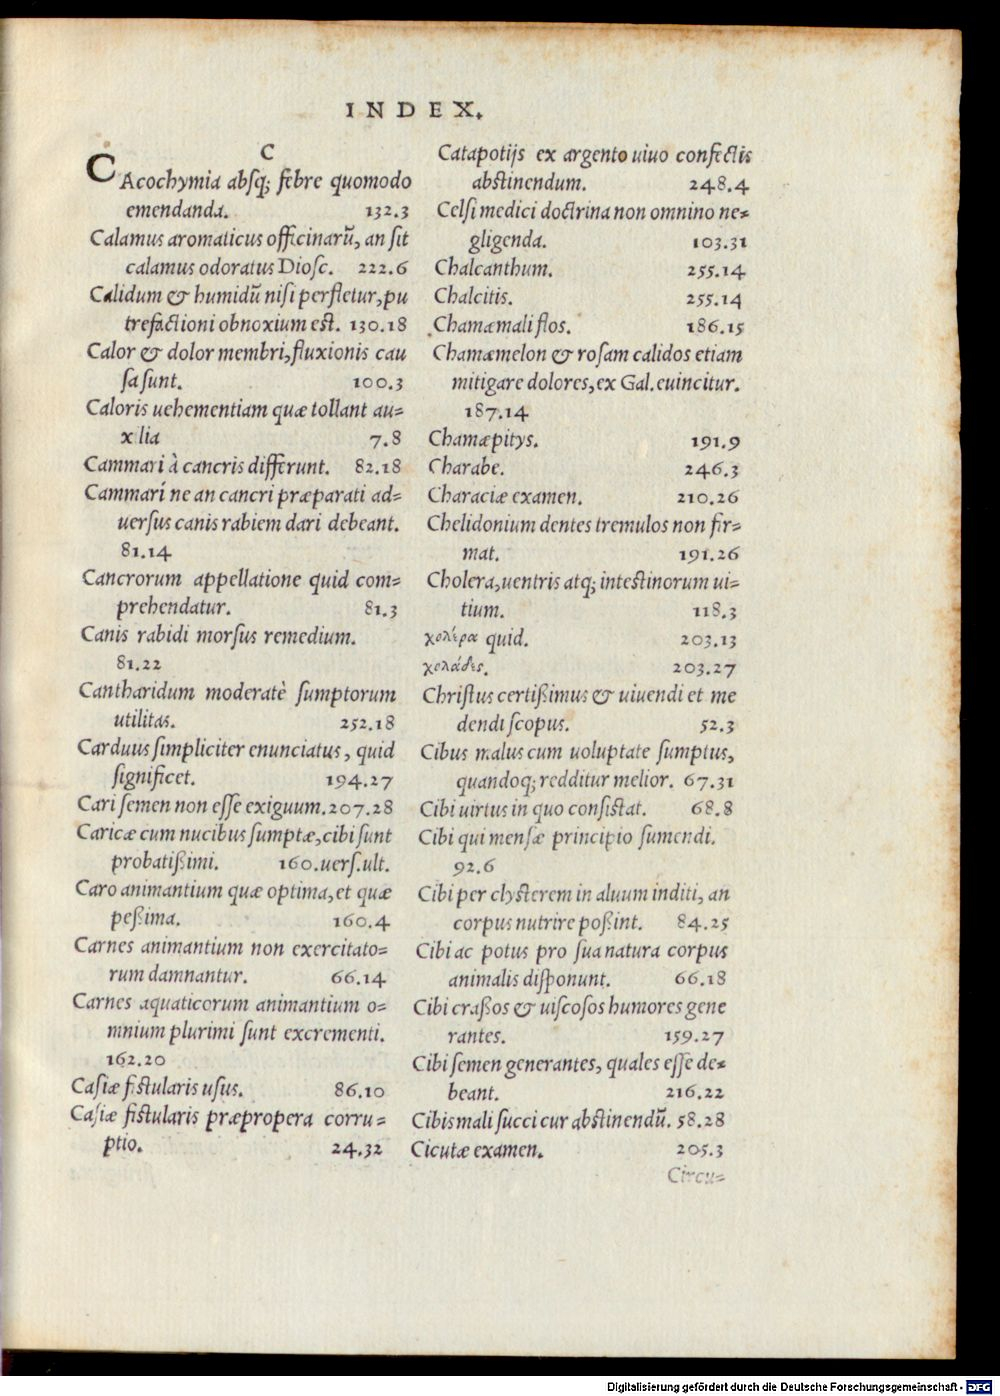 INDEX.
C
CAcochymia absq; febre quomodo
emendanda. 132.3
Calamus aromaticus officinarũ, an ſit
calamus odoratus Dioſc. 222.6
Calidum & humidũ niſi perfletur, pu
trefactioni obnoxium est. 130.18
Calor & dolor membri, fluxionis cau
ſa ſunt. 100.3
Caloris uehementiam quæ tollant au=
xlia 7.8
Cammari à cancris differunt. 82.18
Cammarí ne an cancri præparati ad=
uerſus canis rabiem dari debeant.
81.14
Cancrorum appellatione quid com=
prehendatur. 81.3
Canis rabidi morſus remedium.
81.22
Cantharidum moderatè ſumptorum
utilitas. 252.18
Carduus ſimpliciter enunciatus, quid
ſignificet. 194.27
Cari ſemen non eſſe exiguum. 207.28
Caricæ cum nucibus ſumptæ, cibi ſunt
probatißimi. 160.uerſ.ult.
Caro animantium quæ optima, et quæ
peßima. 160.4
Carnes animantium non exercitato=
rum damnantur. 66.14
Carnes aquaticorum animantium o=
mnium plurimi ſunt excrementi.
162.20
Caſiæ fistularis uſus. 86.10
Caſiæ fistularis præpropera corru=
ptio. 24.32
Catapotijs ex argento uiuo confectis
abstinendum. 248.4
Celſi medici doctrina non omnino ne=
gligenda. 103.31
Chalcanthum. 255.14
Chalcitis. 255.14
Chamæmali flos. 186.15
Chamæmelon & roſam calidos etiam
mitigare dolores, ex Gal. euincitur.
187.14
Chamæpitys. 191.9
Charabe. 246.3
Characiæ examen. 210.26
Chelidonium dentes tremulos non fir=
mat. 191.26
Cholera, uentris atq; intestinorum ui=
tium. 118.3
χολέρα quid. 203.13
χολάδες. 203.27
Chriſtus certißimus & uiuendi et me
dendi ſcopus. 52.3
Cibus malus cum uoluptate ſumptus,
quandoq; redditur melior. 67.31
Cibi uirtus in quo conſistat. 68.8
Cibi qui menſæ principio ſumendi.
92.6
Cibi per clysterem in aluum inditi, an
corpus nutrire poßint. 84.25
Cibi ac potus pro ſua natura corpus
animalis diſponunt. 66.18
Cibi craßos & uiſcoſos humores gene
rantes. 159.27
Cibi ſemen generantes, quales eſſe de=
beant. 216.22
Cibis mali ſucci cur abstinendũ. 58.28
Cicutæ examen. 205.3
Circu=
Digitalisierung gefördert durch die Deutsche Forschungsgemeinschaft - DFG